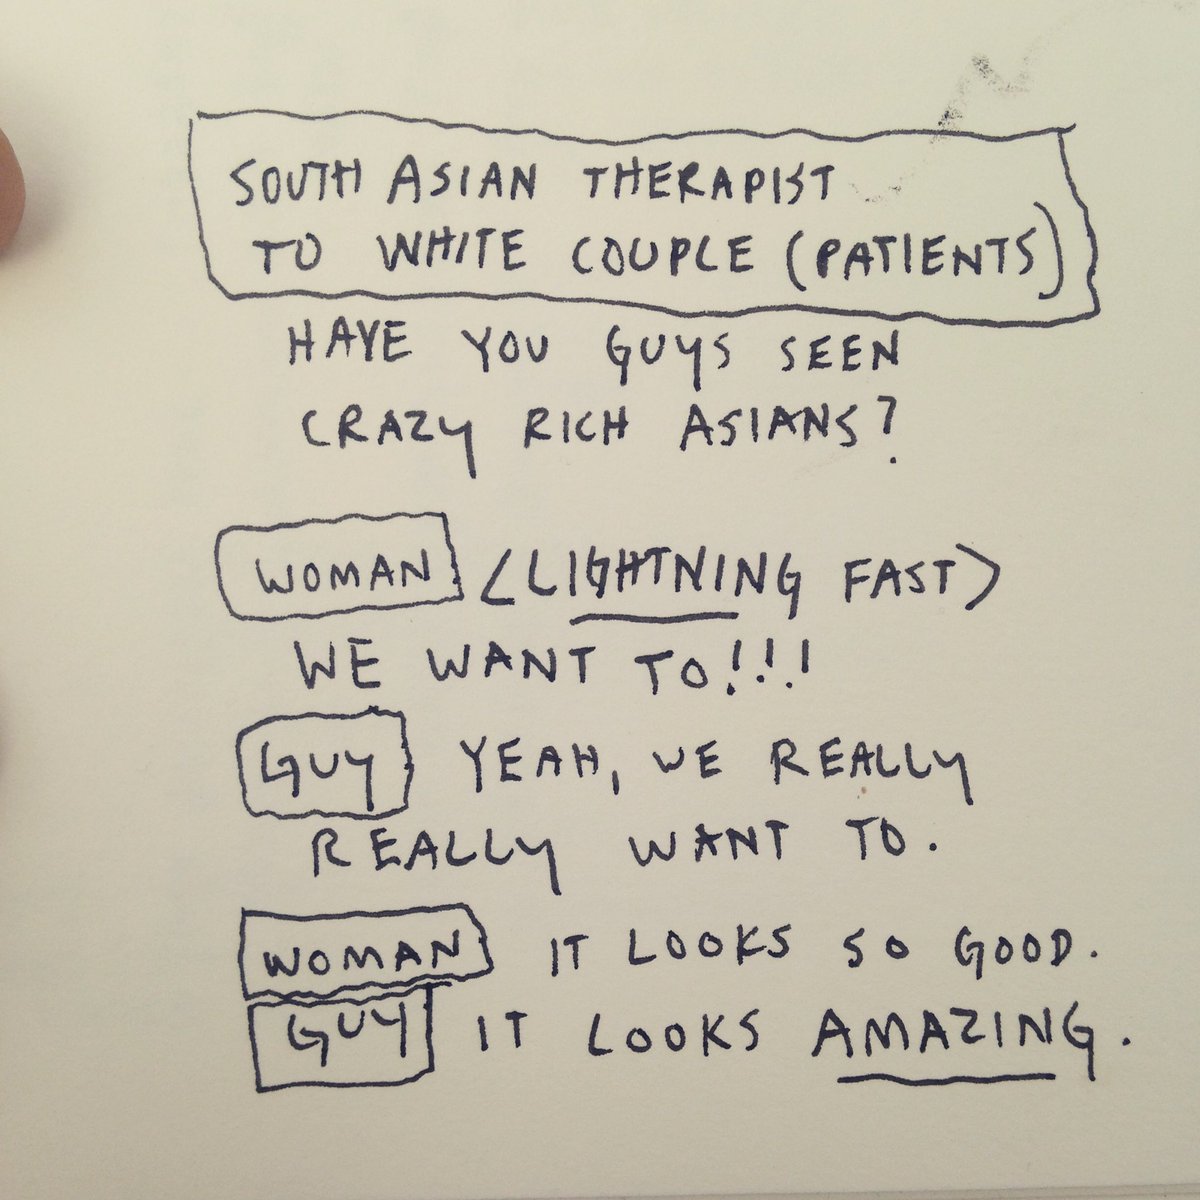 SOUTH ASIAN THERAPIST
TO WHITE COUPLE (PATIENTS)
HAVE YOU GUYS SEEN
CRAZY RICH ASIANS?
WOMAN <LIGHTNING FAST>
WE WANT TO!!!
GUY YEAH, WE REALLY
REALLY WANT TO.
WOMAN IT LOOKS SO GOOD.
GUY IT LOOKS AMAZING.